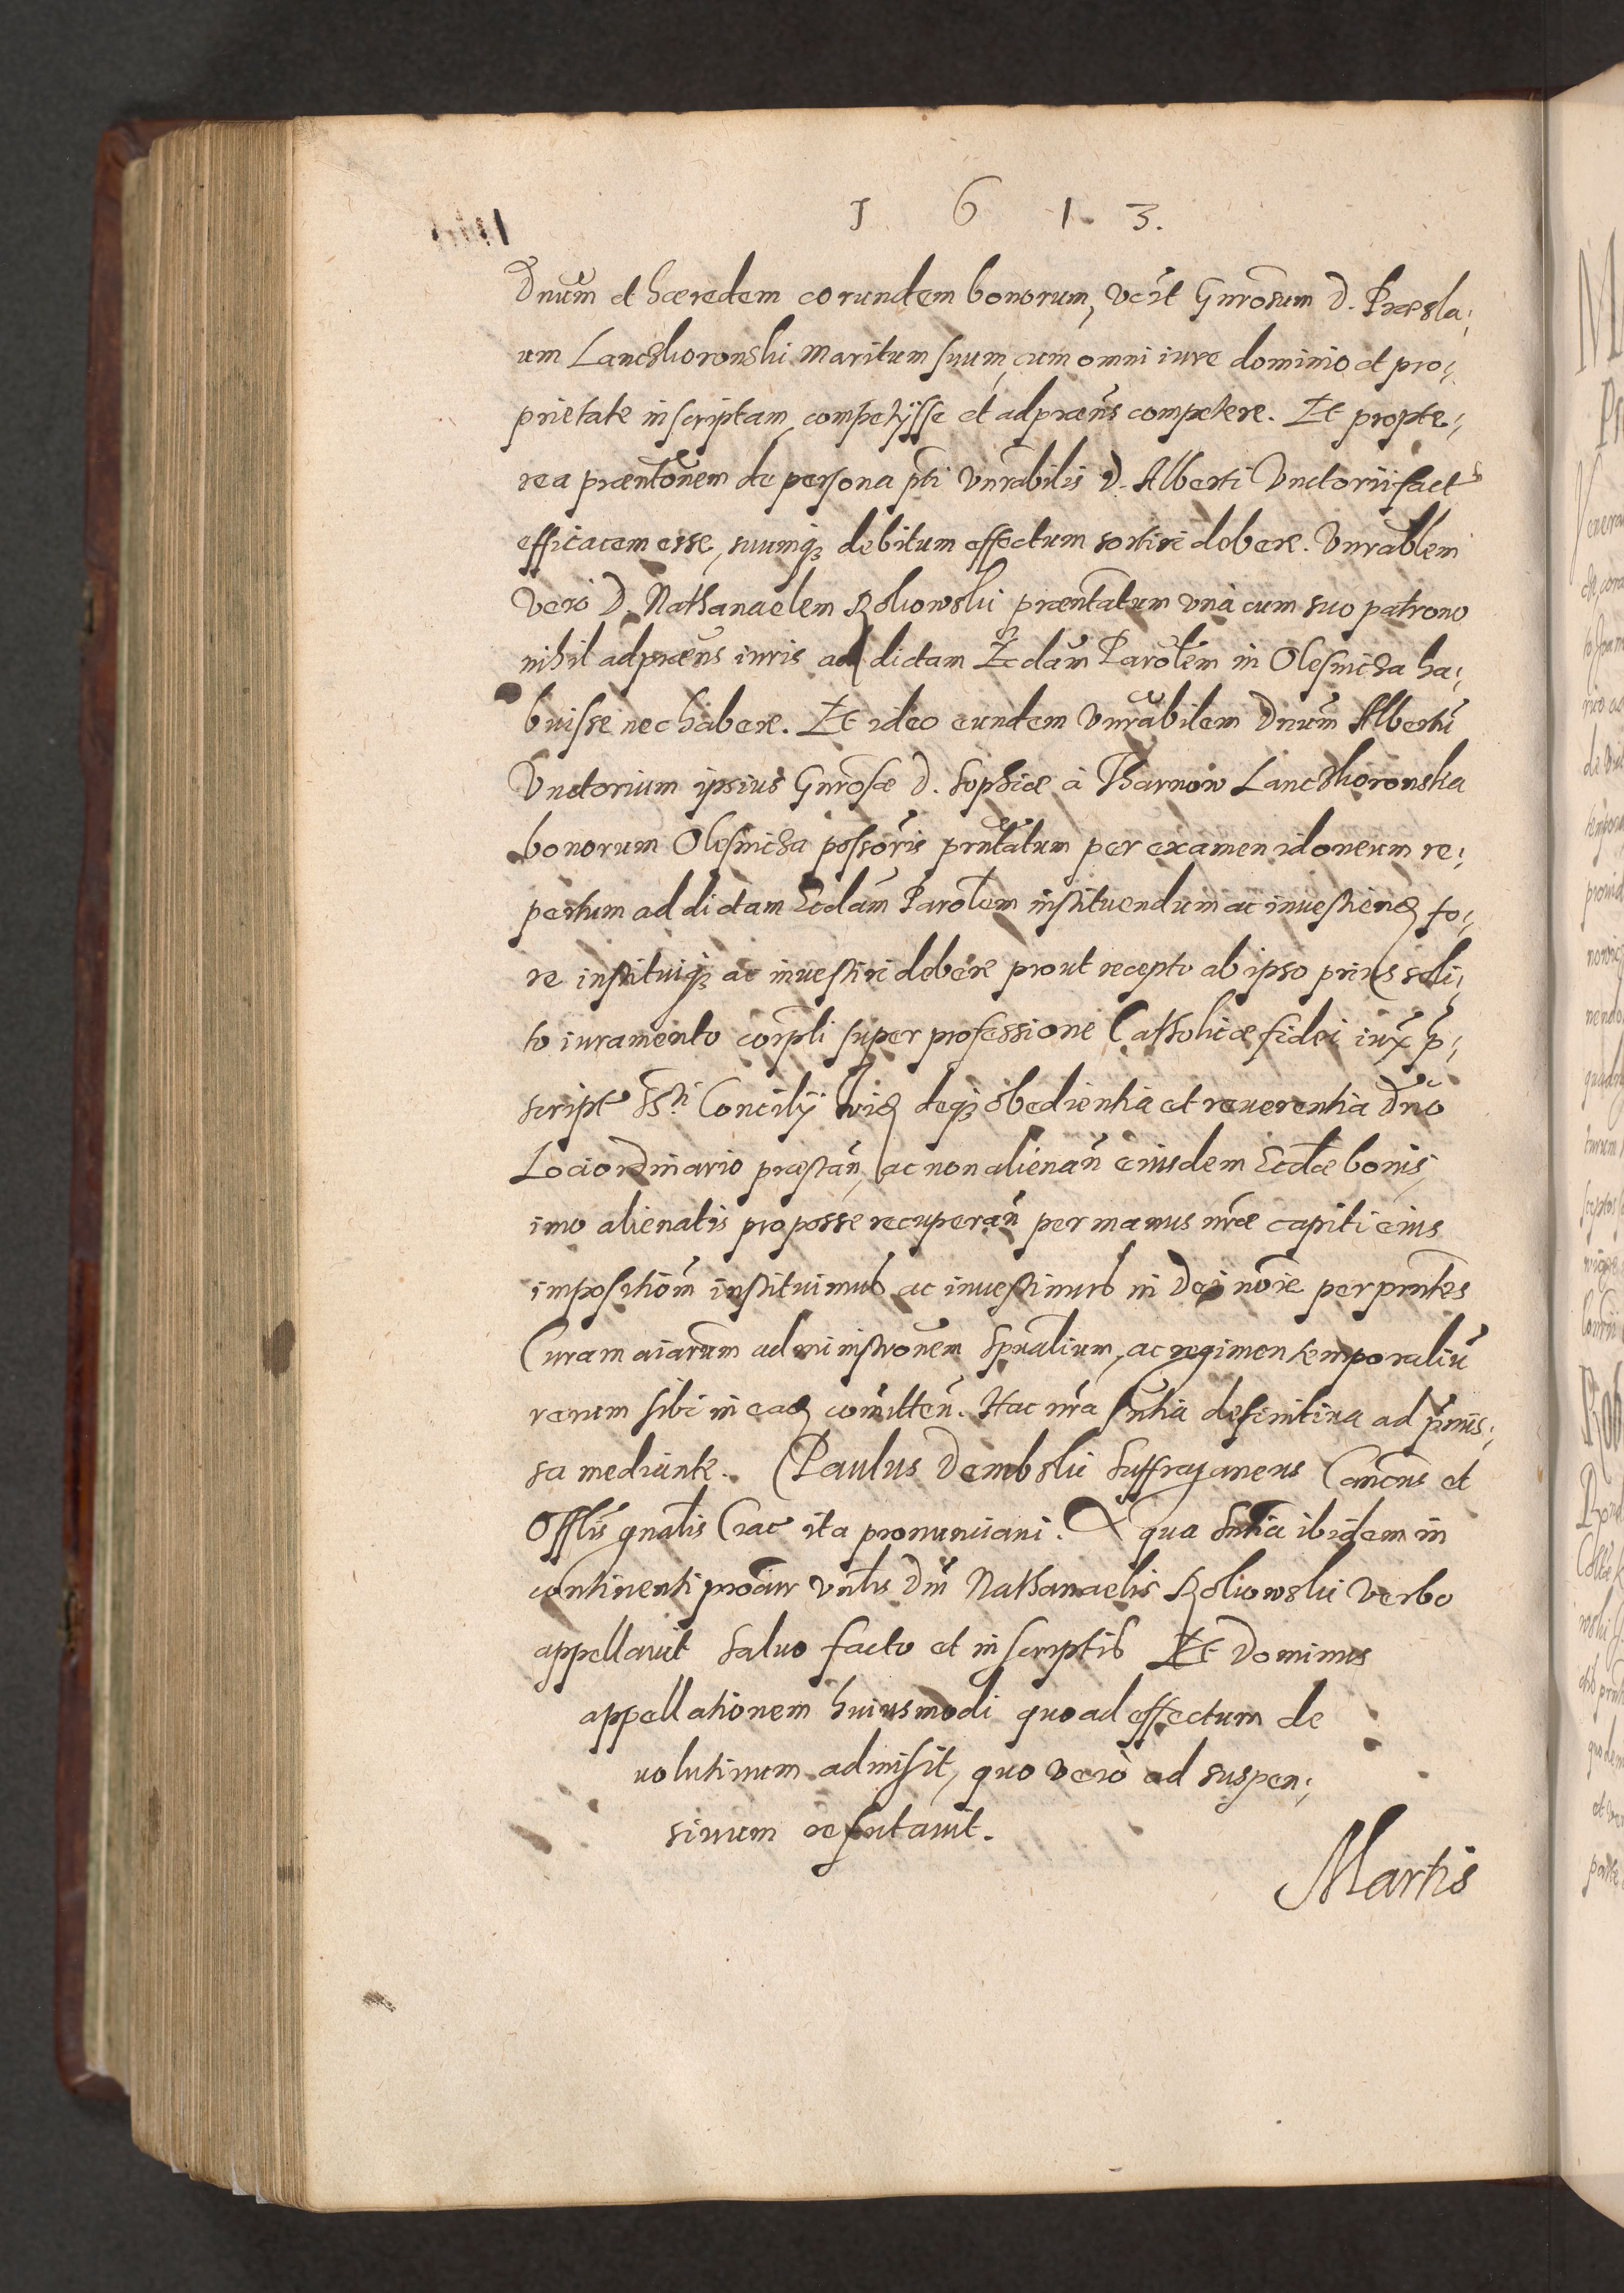 1 6 1 3.
Dnum et hæredem eorundem bonorum, vclt Gnrosum D. Præsla,
um Lanczkoronski maritum suum, cum omni iure dominio et pro,
prietate inscriptam, competijsse et ad præns competere. Et propte,
rea præntonem de persona pti Vnrabilis D. Alberti Vnctorii fact
efficacem esse, suumq3 debitum effectum sortiri debere. Vnrablem
vero D. Nathanaelem Rokowski præntatum vnà cum suo patrono
nihil ad præns iuris ad dictam Ecclam Parolem in Olesnicza ha,
buisse nec habere. Et ideo eundem Vnrabilem Dnum Albertū
Vnctorium ipsius Gnrosæ D. Sophiæ à Tharnow Lanczkoronska
bonorum Olesnicza possoris prntatum per examen idoneum re,
pertum ad dictam Ecclam Parolem instituendum ac inuestiend fo,
re instituiq3 ac inuestiri debere prout recepto ab ipso prius soli,
to iuramento corpli super professione Catholicæ fidei iux p,
script Ssti Concilij Trid deq3 obedientia et reuerentia Dno
Loci ordinario præstan, ac non alienan eiusdem Ecclæ bonis,
imo alienatis pro posse recuperan per manus nræ capiti eius
impositiom instituimus ac inuestimus in Dei noie per prntes
Curam aiarum administronem Spualium, ac regimen temporaliū
rerum sibi in ead comitten. Hac nra Sntia definitiua ad pmis,
sa mediante. Paulus Dembski Suffraganeus Cancus et
Offlis gnalis Crac ita pronunciaui. A qua Sntia ibidem in
continenti procur Vnlis Dni Nathanaelis Rokowski verbo
appellauit saluo facto et in scriptis Et Dominus
appellationem huiusmodi quo ad effectum de
uolutiuum admisit, quo vero ad suspen,
siuum refutauit.
Martis